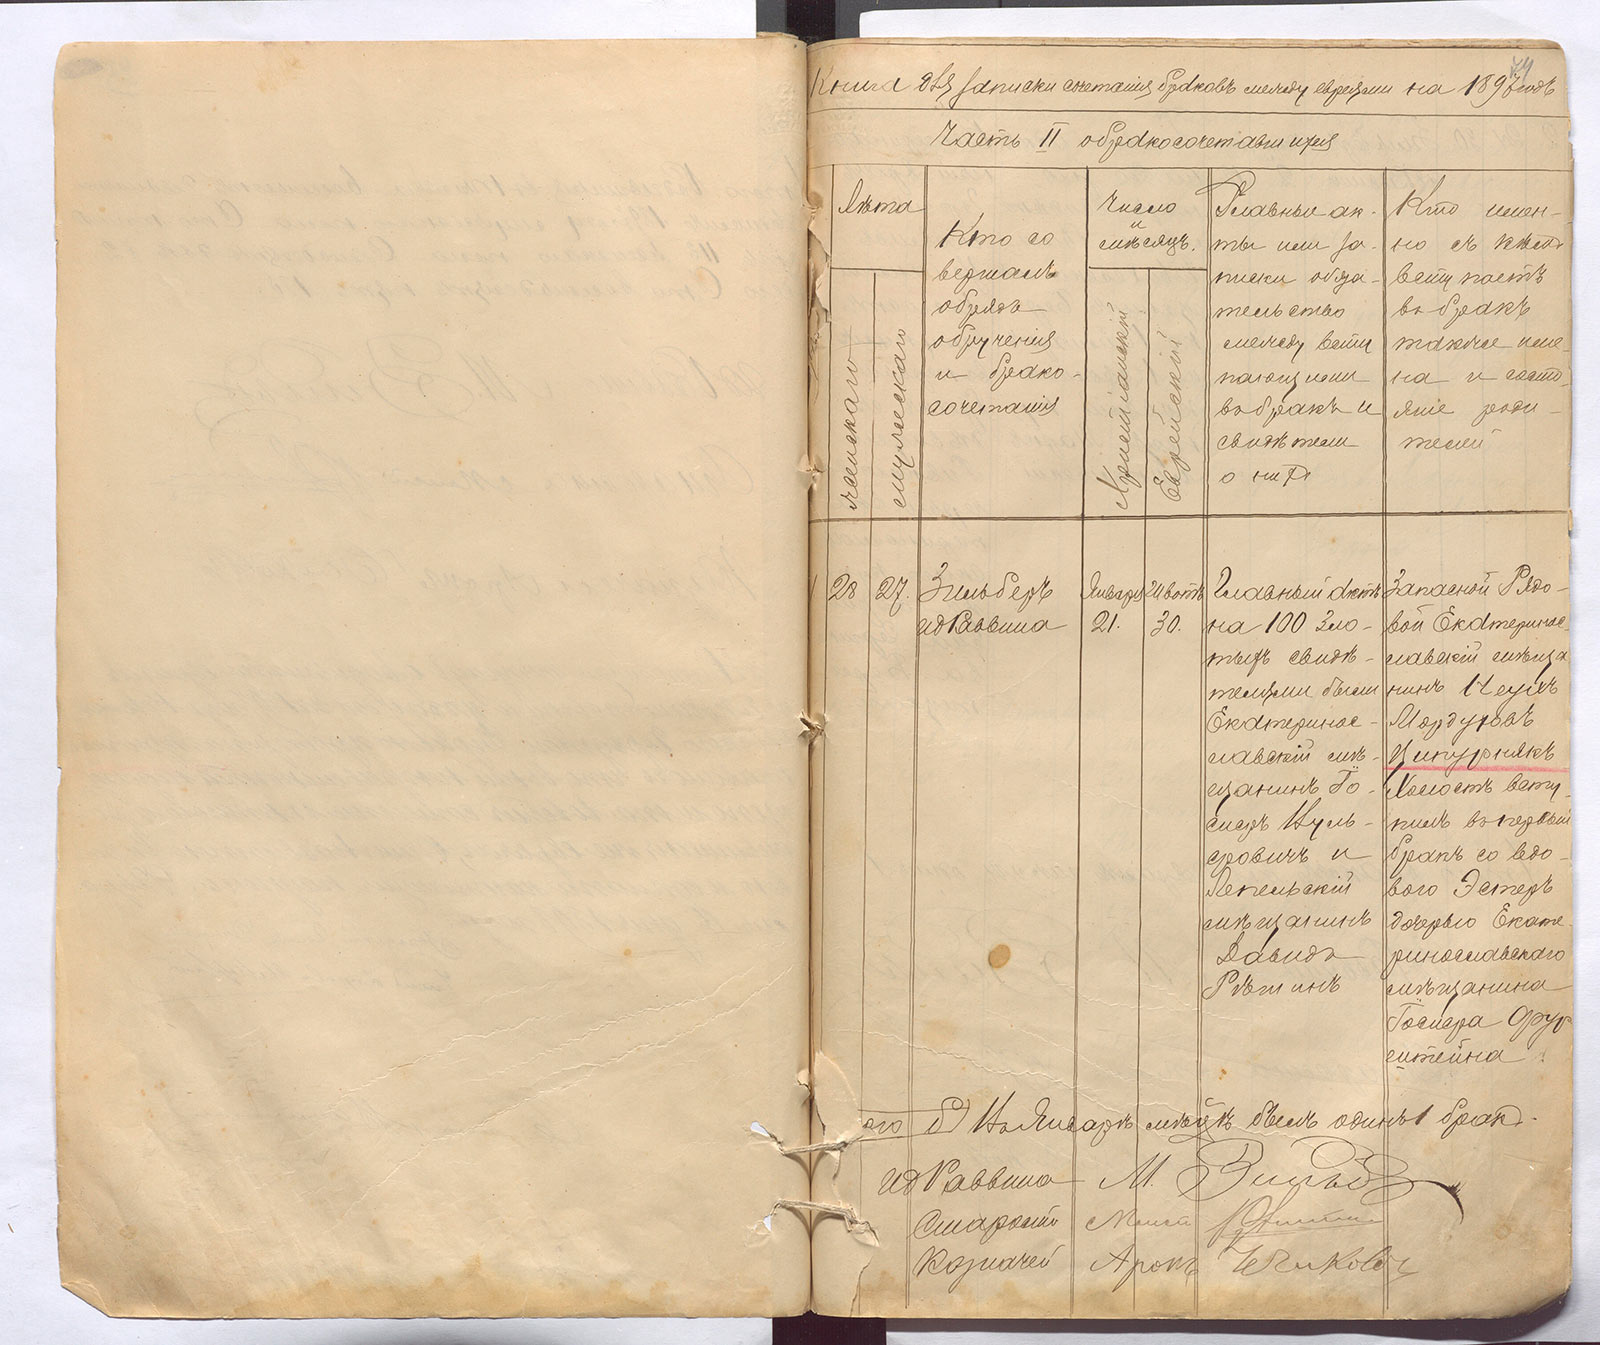 74
Книга для записки сочетанія браковъ между евреями на 1897 годъ
Часть II о бракосочетавшихся
Лѣта
женскаго
мужескаго
Кто со
вершалъ
обрядъ
обрученія
и брако-
сочетанія
Число
и
мѣсяцъ.
Христіанскій
Еврейскій
Главные ак-
ты или за-
писки обяза-
тельство
между всту
пающими
въ бракъ и
свидѣтели
о нихъ
Кто имен-
но съ кѣмъ
вступаетъ
въ бракъ
также име-
на и состо-
яніе роди-
телей
1
28
27.
Зильберъ
ид Раввина
Января
21.
Шватъ
30.
Главный актъ
на 100 зло-
тыхъ свидѣ-
телями были
Екатеринос-
лавскій мѣ-
щанинъ Іо-
сифъ
и
Лепельскій
мѣщанинъ
Давидъ
Запасной Рядо-
вой Екатеринос-
лавскій мѣща
нинъ
Мордуховъ
Ципурнякъ
Холостъ всту-
пилъ въ первый
бракъ со вдо-
вого Эстеръ
дочерью Екате-
ринославскаго
мѣщанина
штейна
ого въ Январѣ мѣсяцѣ былъ одинъ 1 бракъ.
ид Раввина М. Зильбер
Староста
Казначей Аронъ